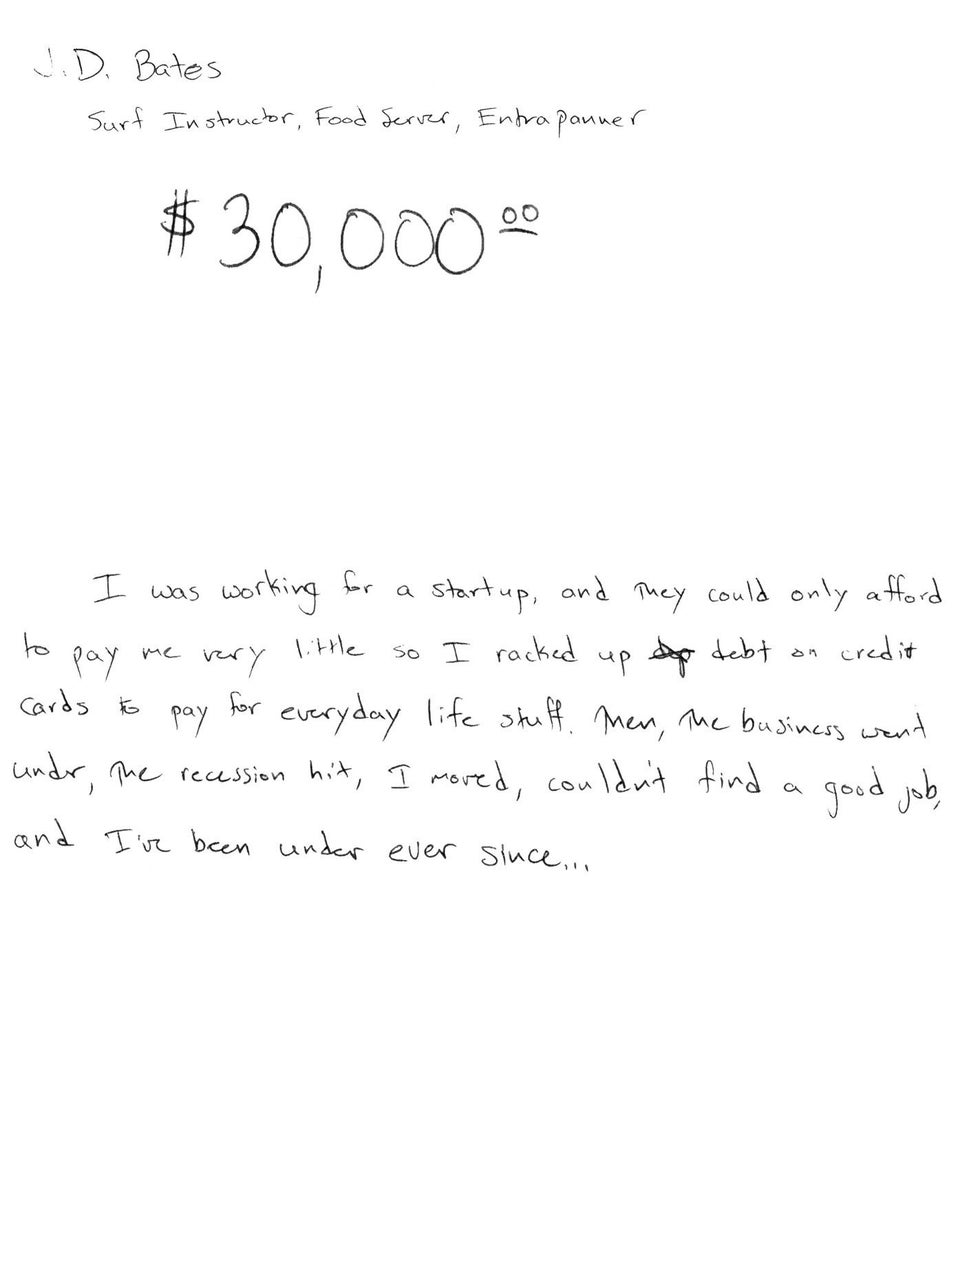 J.D. Bates
Surf Instructor, Food Server, Entrapanner
$30,000.00
I was working for a startup, and they could only afford
to pay me very little so I racked up debt on credit
cards to pay for everyday life stuff. Then, the business went
under, the recession hit, I moved, couldn't find a good job,
and I've been under ever since...